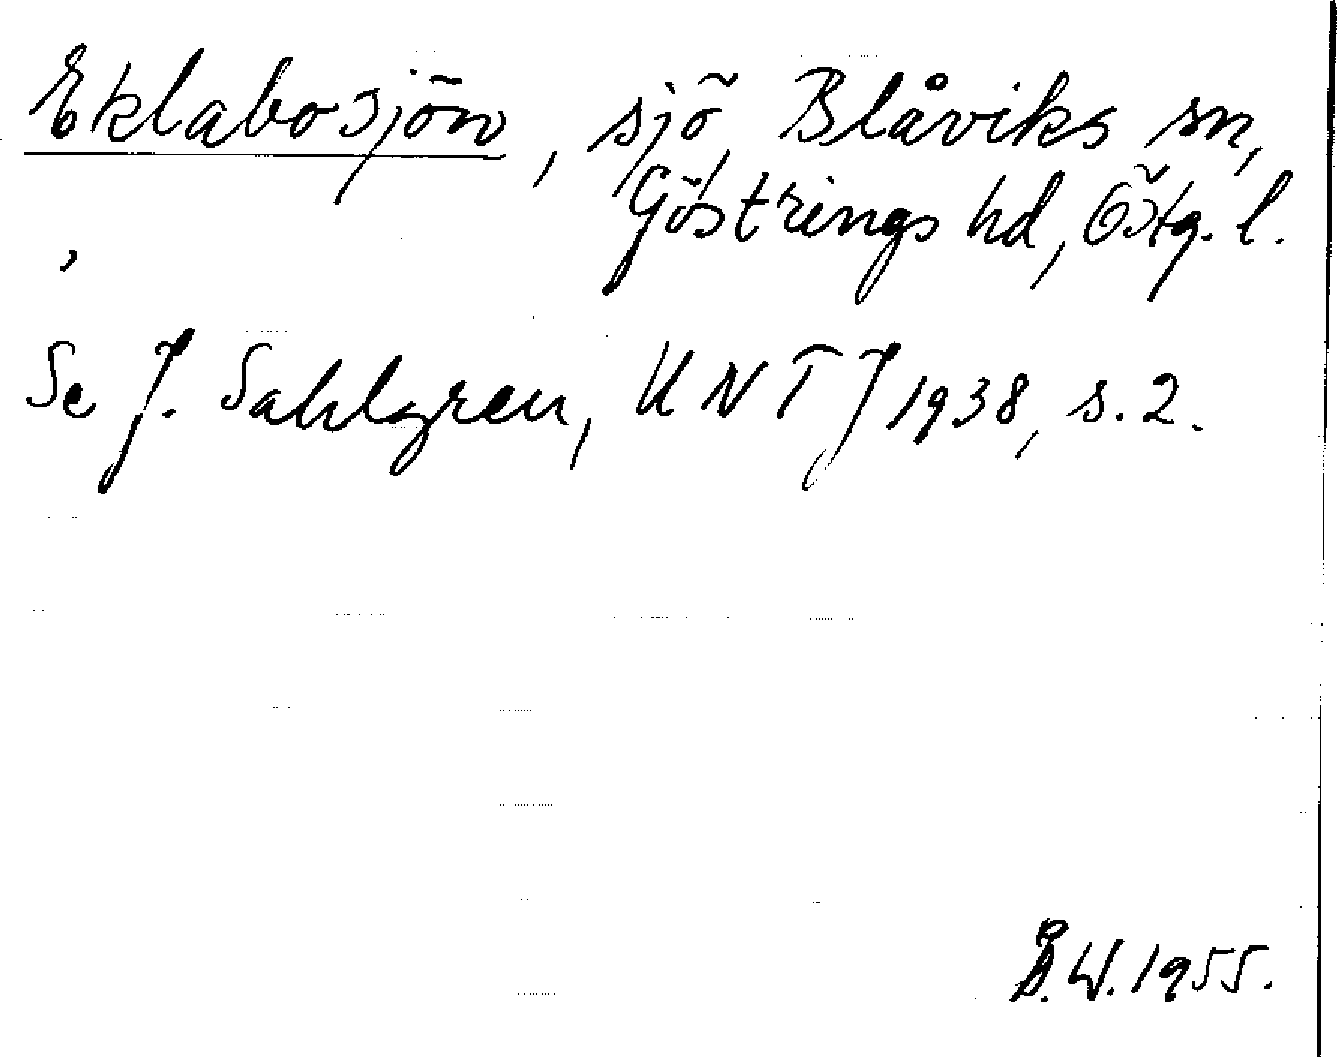 Eklabosjön, sjö, Blåviks sn,
Göstrings hd, Östg. l.
Se J. Sahlgren, UNTJ 1938, s. 2.
Å.W. 1955.